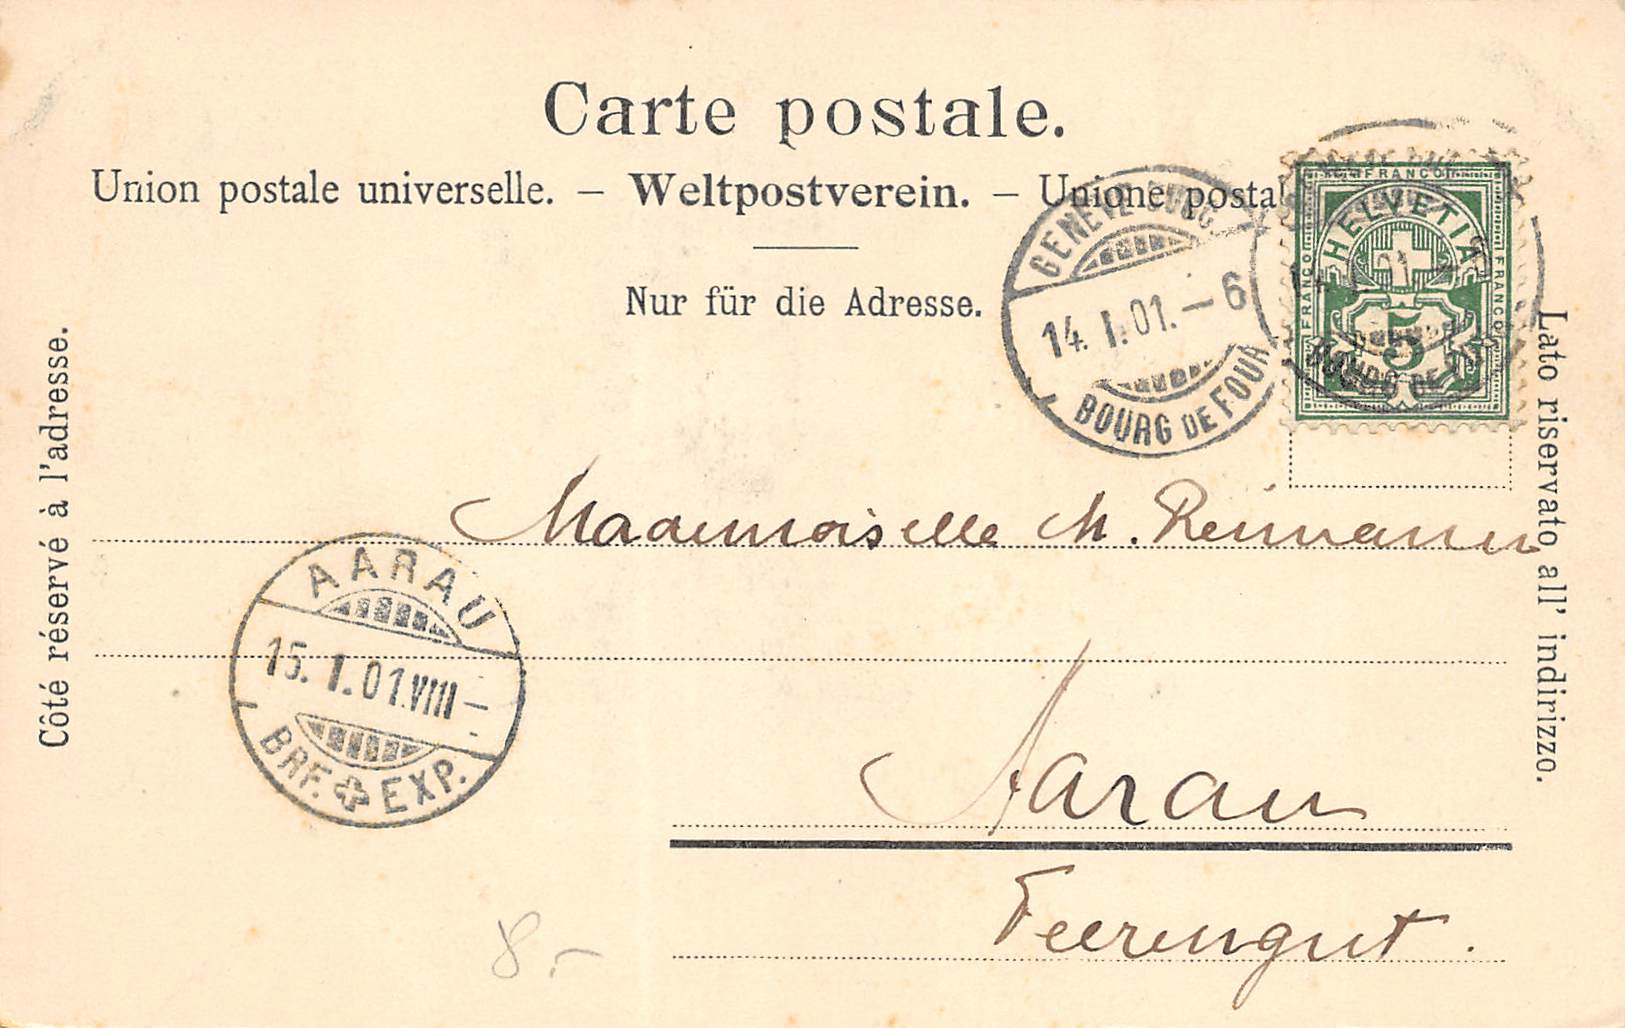 Carte postale.
Union postale universelle. – Weltpostverein. – Unione postal
Nur für die Adresse.
Côté réservé à l'adresse.
Lato riservato all' indirizzo.
GENEVE
14. I. 01. – 6
BOURG DE FOUR
FRANCO
FRANCO
FRANCO
HELVETIA
5
BOURG DE
Mademoiselle M. Reimann
AARAU
15. I. 01. VIII –
BRF. EXP.
Aarau
Feerengut.
8.-